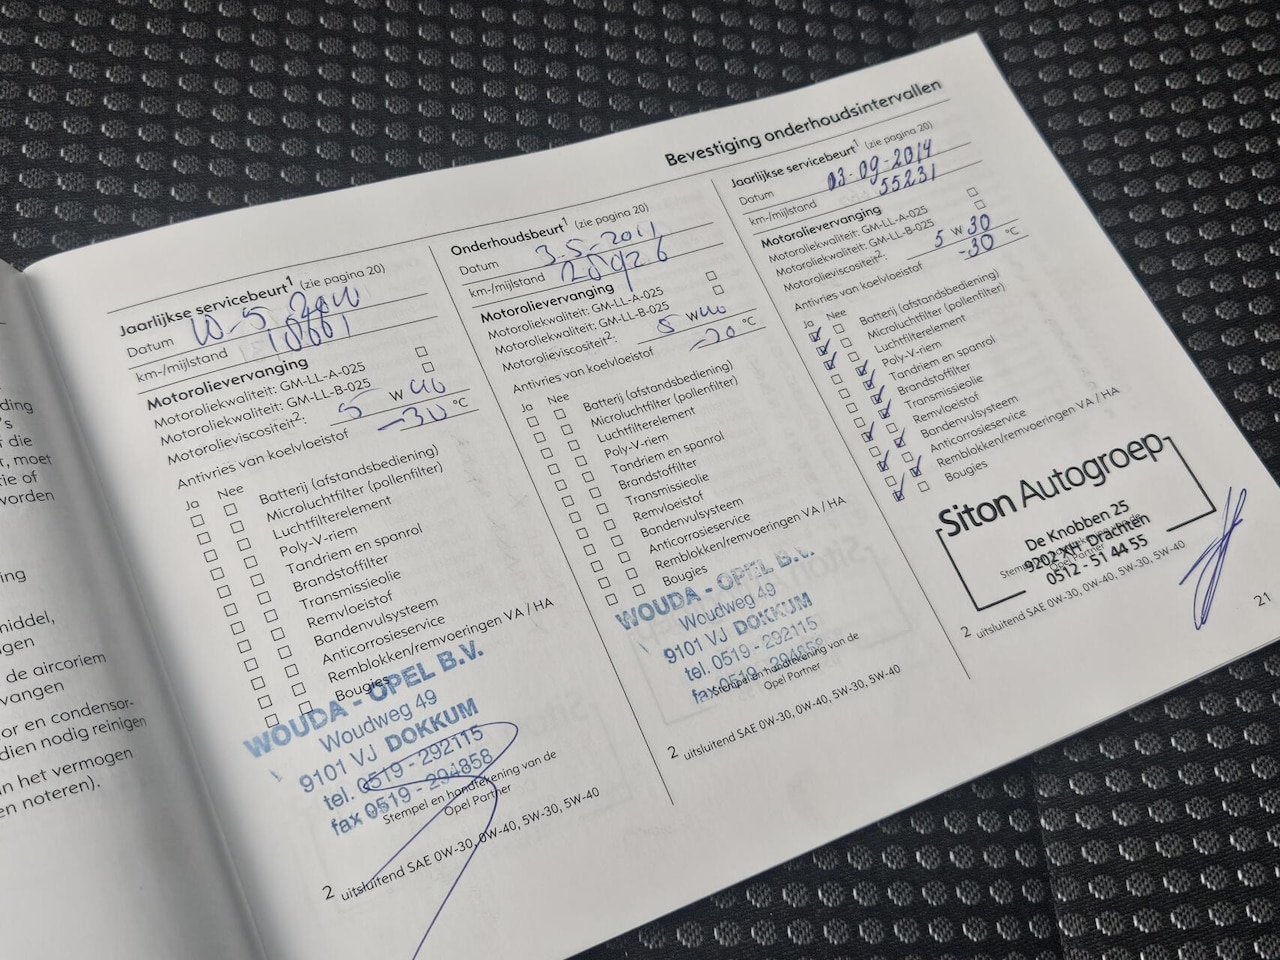 ding
's
f die
t, moet
tie of
vorden
ing
middel,
gen
de aircoriem
vangen
or en condensor-
dien nodig reinigen
an het vermogen
en noteren).
Bevestiging onderhoudsintervallen
Jaarlijkse servicebeurt1 (zie pagina 20)
Datum
km-/mijlstand 10661
Motorolievervanging
Motoroliekwaliteit: GM-LL-A-025
Motoroliekwaliteit: GM-LL-B-025
Motorolieviscositeit2: 5 W 40
Antivries van koelvloeistof -30 °C
Ja Nee
Batterij (afstandsbediening)
Microluchtfilter (pollenfilter)
Luchtfilterelement
Poly-V-riem
Tandriem en spanrol
Brandstoffilter
Transmissieolie
Remvloeistof
Bandenvulsysteem
Anticorrosieservice
Remblokken/remvoeringen VA / HA
Bougies
WOUDA - OPEL B.V.
Woudweg 49
9101 VJ DOKKUM
tel. 0519 - 292115
fax 0519 - 294858
Stempel en handtekening van de
Opel Partner
2 uitsluitend SAE 0W-30, 0W-40, 5W-30, 5W-40
Onderhoudsbeurt1 (zie pagina 20)
Datum 3-5-2011
km-/mijlstand 20926
Motorolievervanging
Motoroliekwaliteit: GM-LL-A-025
Motoroliekwaliteit: GM-LL-B-025
Motorolieviscositeit2: 5 W 40
Antivries van koelvloeistof -20 °C
Ja Nee
Batterij (afstandsbediening)
Microluchtfilter (pollenfilter)
Luchtfilterelement
Poly-V-riem
Tandriem en spanrol
Brandstoffilter
Transmissieolie
Remvloeistof
Bandenvulsysteem
Anticorrosieservice
Remblokken/remvoeringen VA / HA
Bougies
WOUDA - OPEL B.V.
Woudweg 49
9101 VJ DOKKUM
tel. 0519 - 292115
fax 0519 - 294858
Stempel en handtekening van de
Opel Partner
2 uitsluitend SAE 0W-30, 0W-40, 5W-30, 5W-40
Jaarlijkse servicebeurt1 (zie pagina 20)
Datum 03-09-2014
km-/mijlstand 55231
Motorolievervanging
Motoroliekwaliteit: GM-LL-A-025
Motoroliekwaliteit: GM-LL-B-025
Motorolieviscositeit2: 5 W 30
Antivries van koelvloeistof -30 °C
Ja Nee
Batterij (afstandsbediening)
Microluchtfilter (pollenfilter)
Luchtfilterelement
Poly-V-riem
Tandriem en spanrol
Brandstoffilter
Transmissieolie
Remvloeistof
Bandenvulsysteem
Anticorrosieservice
Remblokken/remvoeringen VA / HA
Bougies
Siton Autogroep
De Knobben 25
9202 XH Drachten
0512 - 51 44 55
Opel Partner
2 uitsluitend SAE 0W-30, 0W-40, 5W-30, 5W-40
21